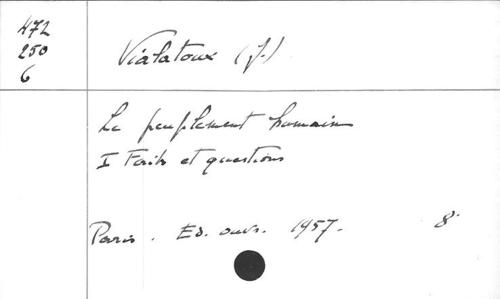 472
250
6
Vialatoux (J.)
Le peuplement humain
I Faits et questions
Paris. Ed. ouvr. 1957. 8°